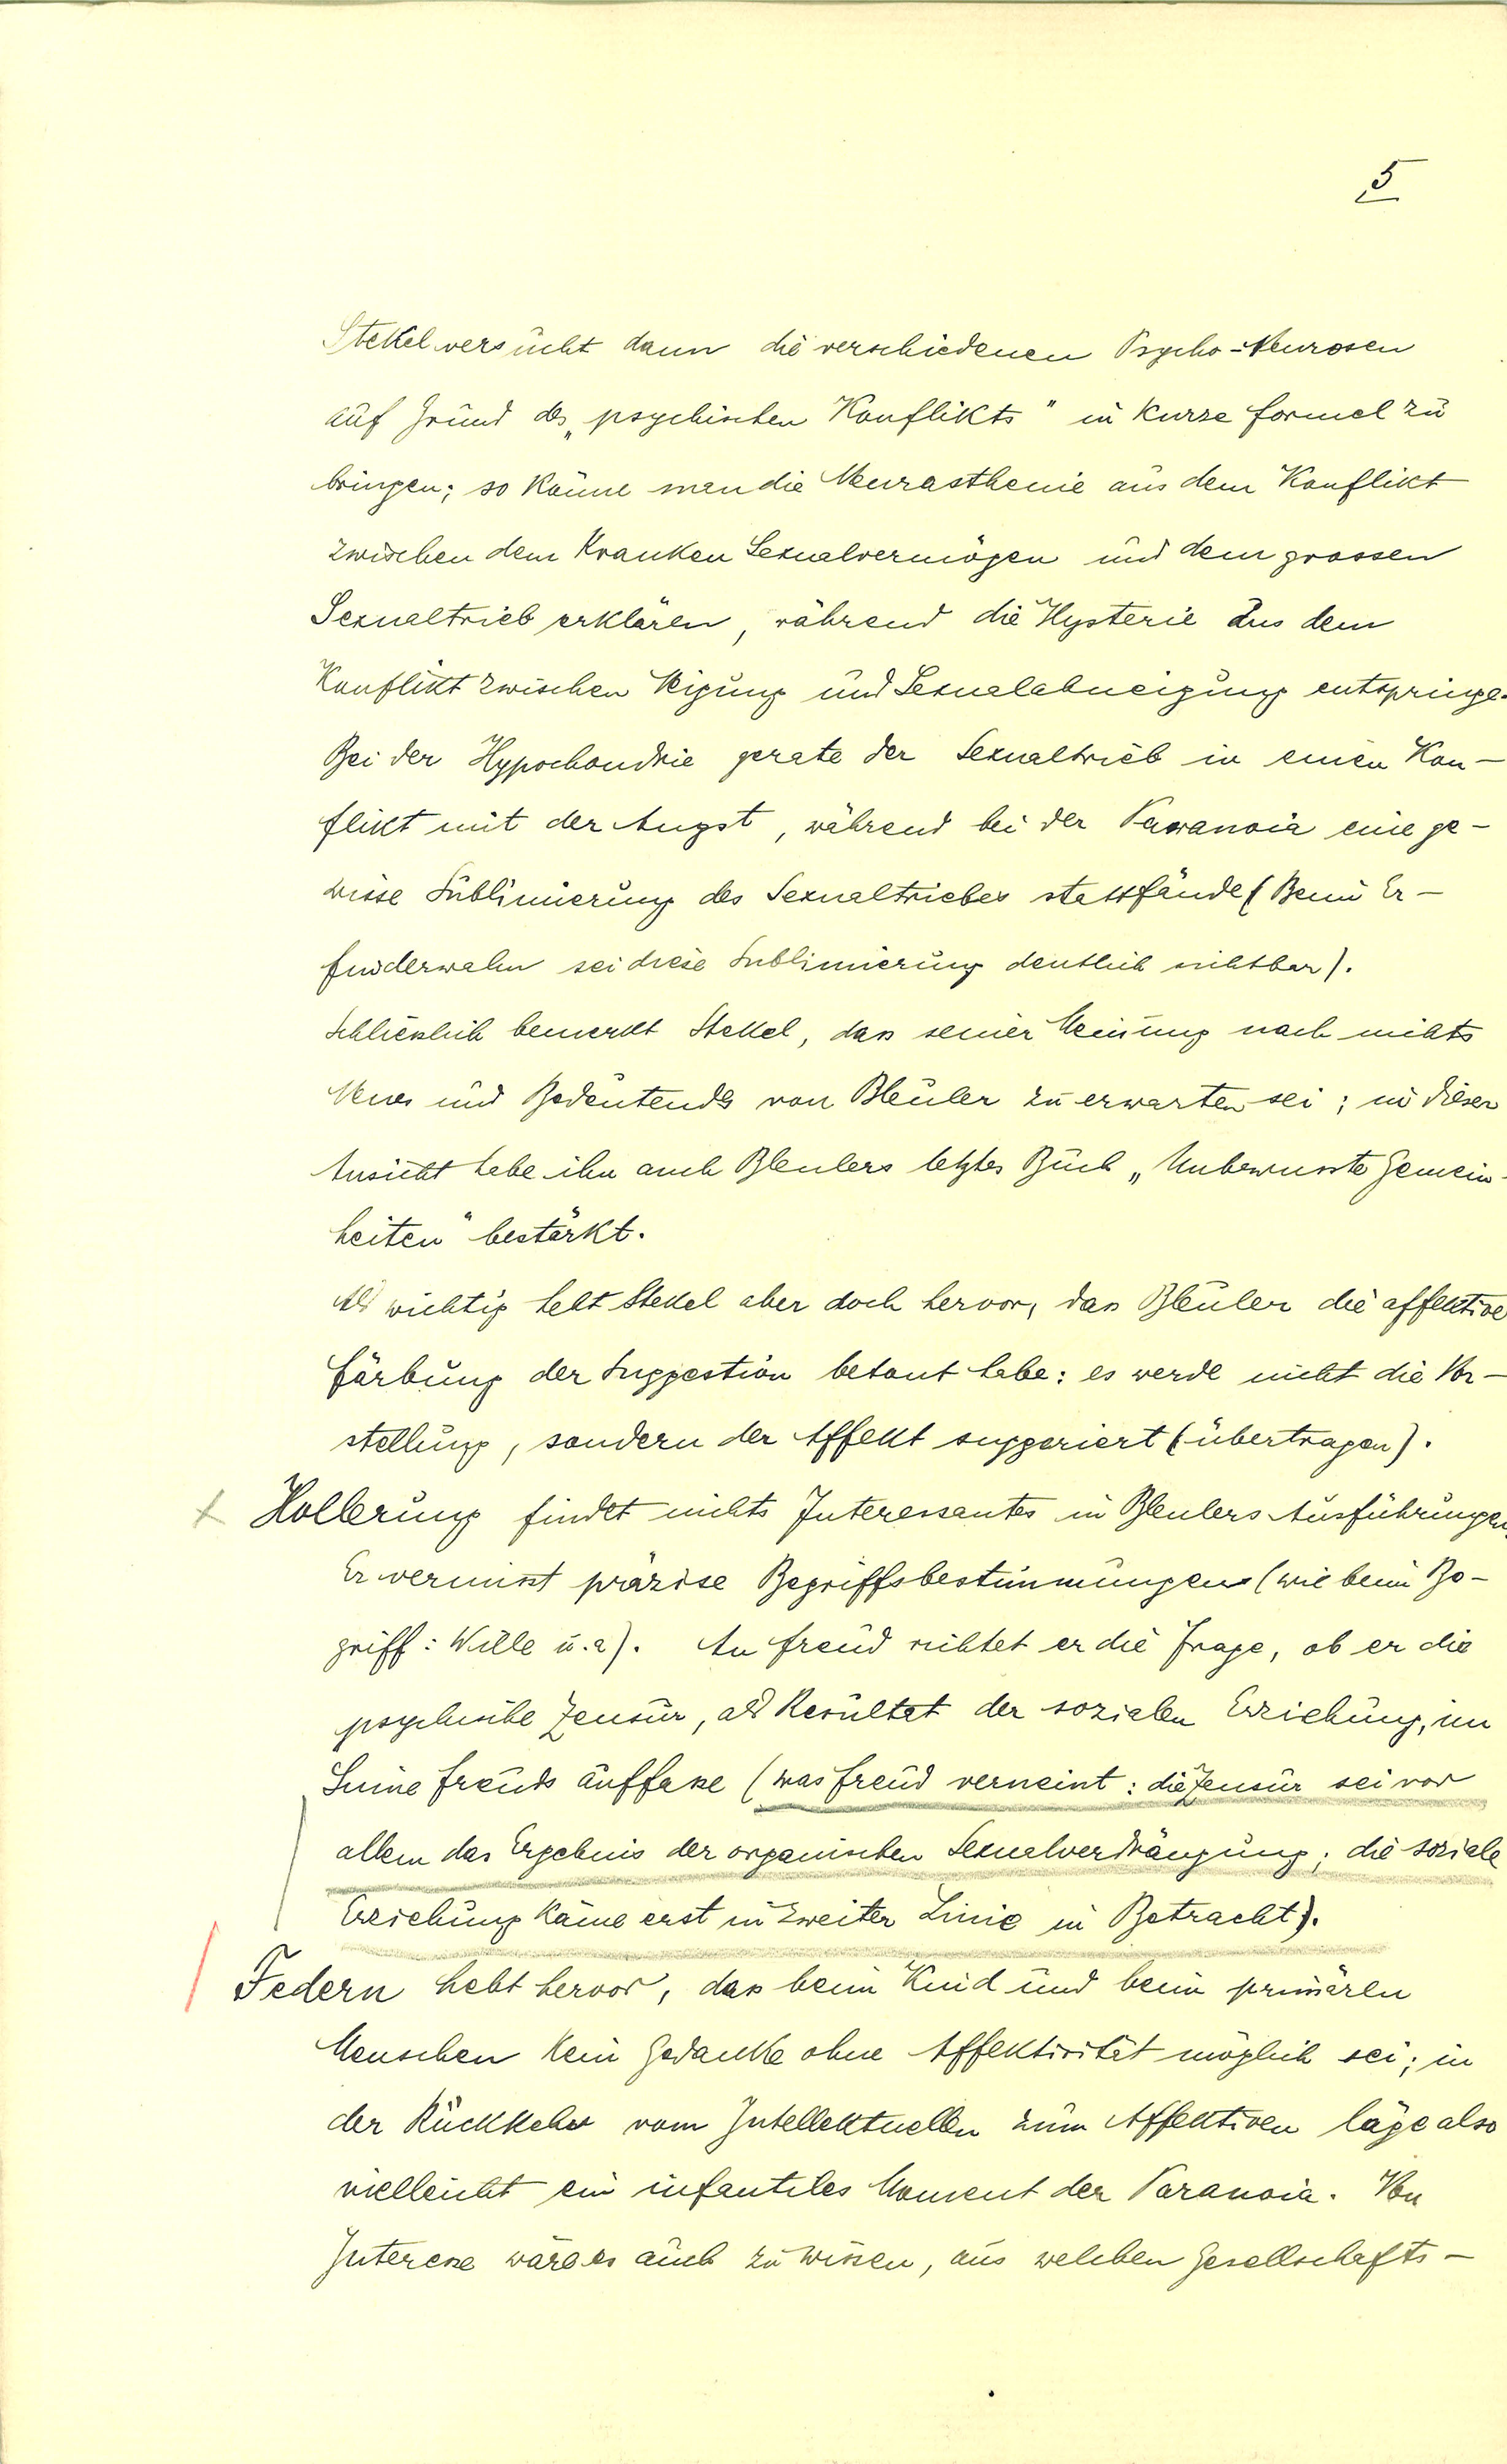 5
Stekel versucht dann die verschiedenen Psycho-Neurosen
auf Grund des „psychischen Konflikts" in kurze Formel zu
bringen; so könne man die Neurasthenie aus dem Konflikt
zwischen dem kranken Sexualvermögen und dem grossen
Sexualtrieb erklären, während die Hysterie aus dem
Konflikt zwischen Neigung und Sexualabneigung entspringe.
Bei der Hypochondrie gerate der Sexualtrieb in einen Kon-
flikt mit der Angst, während bei der Paranoia eine ge-
wisse Sublimierung des Sexualtriebes stattfände (Beim Er-
finderwahn sei diese Sublimierung deutlich sichtbar).
Schließlich bemerkt Stekel, daß seiner Meinung nach nichts
Neues und Bedeutendes von Bleuler zu erwarten sei; in dieser
Ansicht habe ihn auch Bleulers letztes Buch „Unbewusste Gemein-
heiten" bestärkt.
Als wichtig hebt Stekel aber doch hervor, daß Bleuler die affektive
Färbung der Suggestion betont habe: es werde nicht die Vor-
stellung, sondern der Affekt suggeriert (übertragen).
Hollerung findet nichts Interessantes in Bleulers Ausführungen.
Er vermißt präzise Begriffsbestimmungen (wie beim Be-
griff: Wille u. a). An Freud richtet er die Frage, ob er die
psychische Zensur, als Resultat der sozialen Erziehung, im
Sinne Freuds auffaße (was Freud verneint: die Zensur sei vor
allem das Ergebnis der organischen Sexualverdrängung; die soziale
Erziehung käme erst in zweiter Linie in Betracht).
Federn hebt hervor, daß beim Kind und beim primären
Menschen kein Gedanke ohne Affektivität möglich sei; in
der Rückkehr vom Intellektuellen zum Affektiven läge also
vielleicht ein infantiles Moment der Paranoia. Von
Intereße wäre es auch zu wißen, aus welchen Gesellschafts-